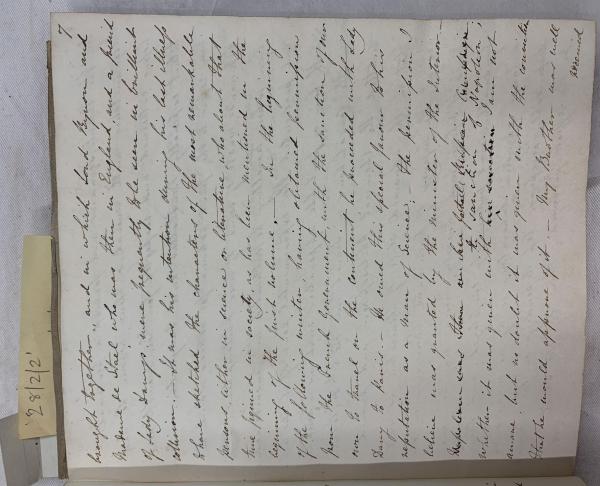 7
brought together, and in which Lord Byron and
Madame de Stael who was then in England, and a friend
of Lady Davy's were frequently to be seen in brilliant
collision. – It was his intention during his last illness
to have sketched the characters of the most remarkable
persons either in science or literature who about that
time figured in society, as has been mentioned in the
beginning of the first volume. – In the beginning
of the following winter, having obtained permission
from the French Government, with the sanction of our
own to travel on the continent he proceeded with Lady
Davy to Paris. – He owed this special favour to his
reputation as a man of Science; – the permission I
believe was granted by the minister of the Interior –
Napoleon was then on his fatal campaign
whether it was given with the sanction of Napoleon, I am not
aware; but no doubt it was given with the conviction
that he would approve of it. – My Brother was well
received
'28/2/2'